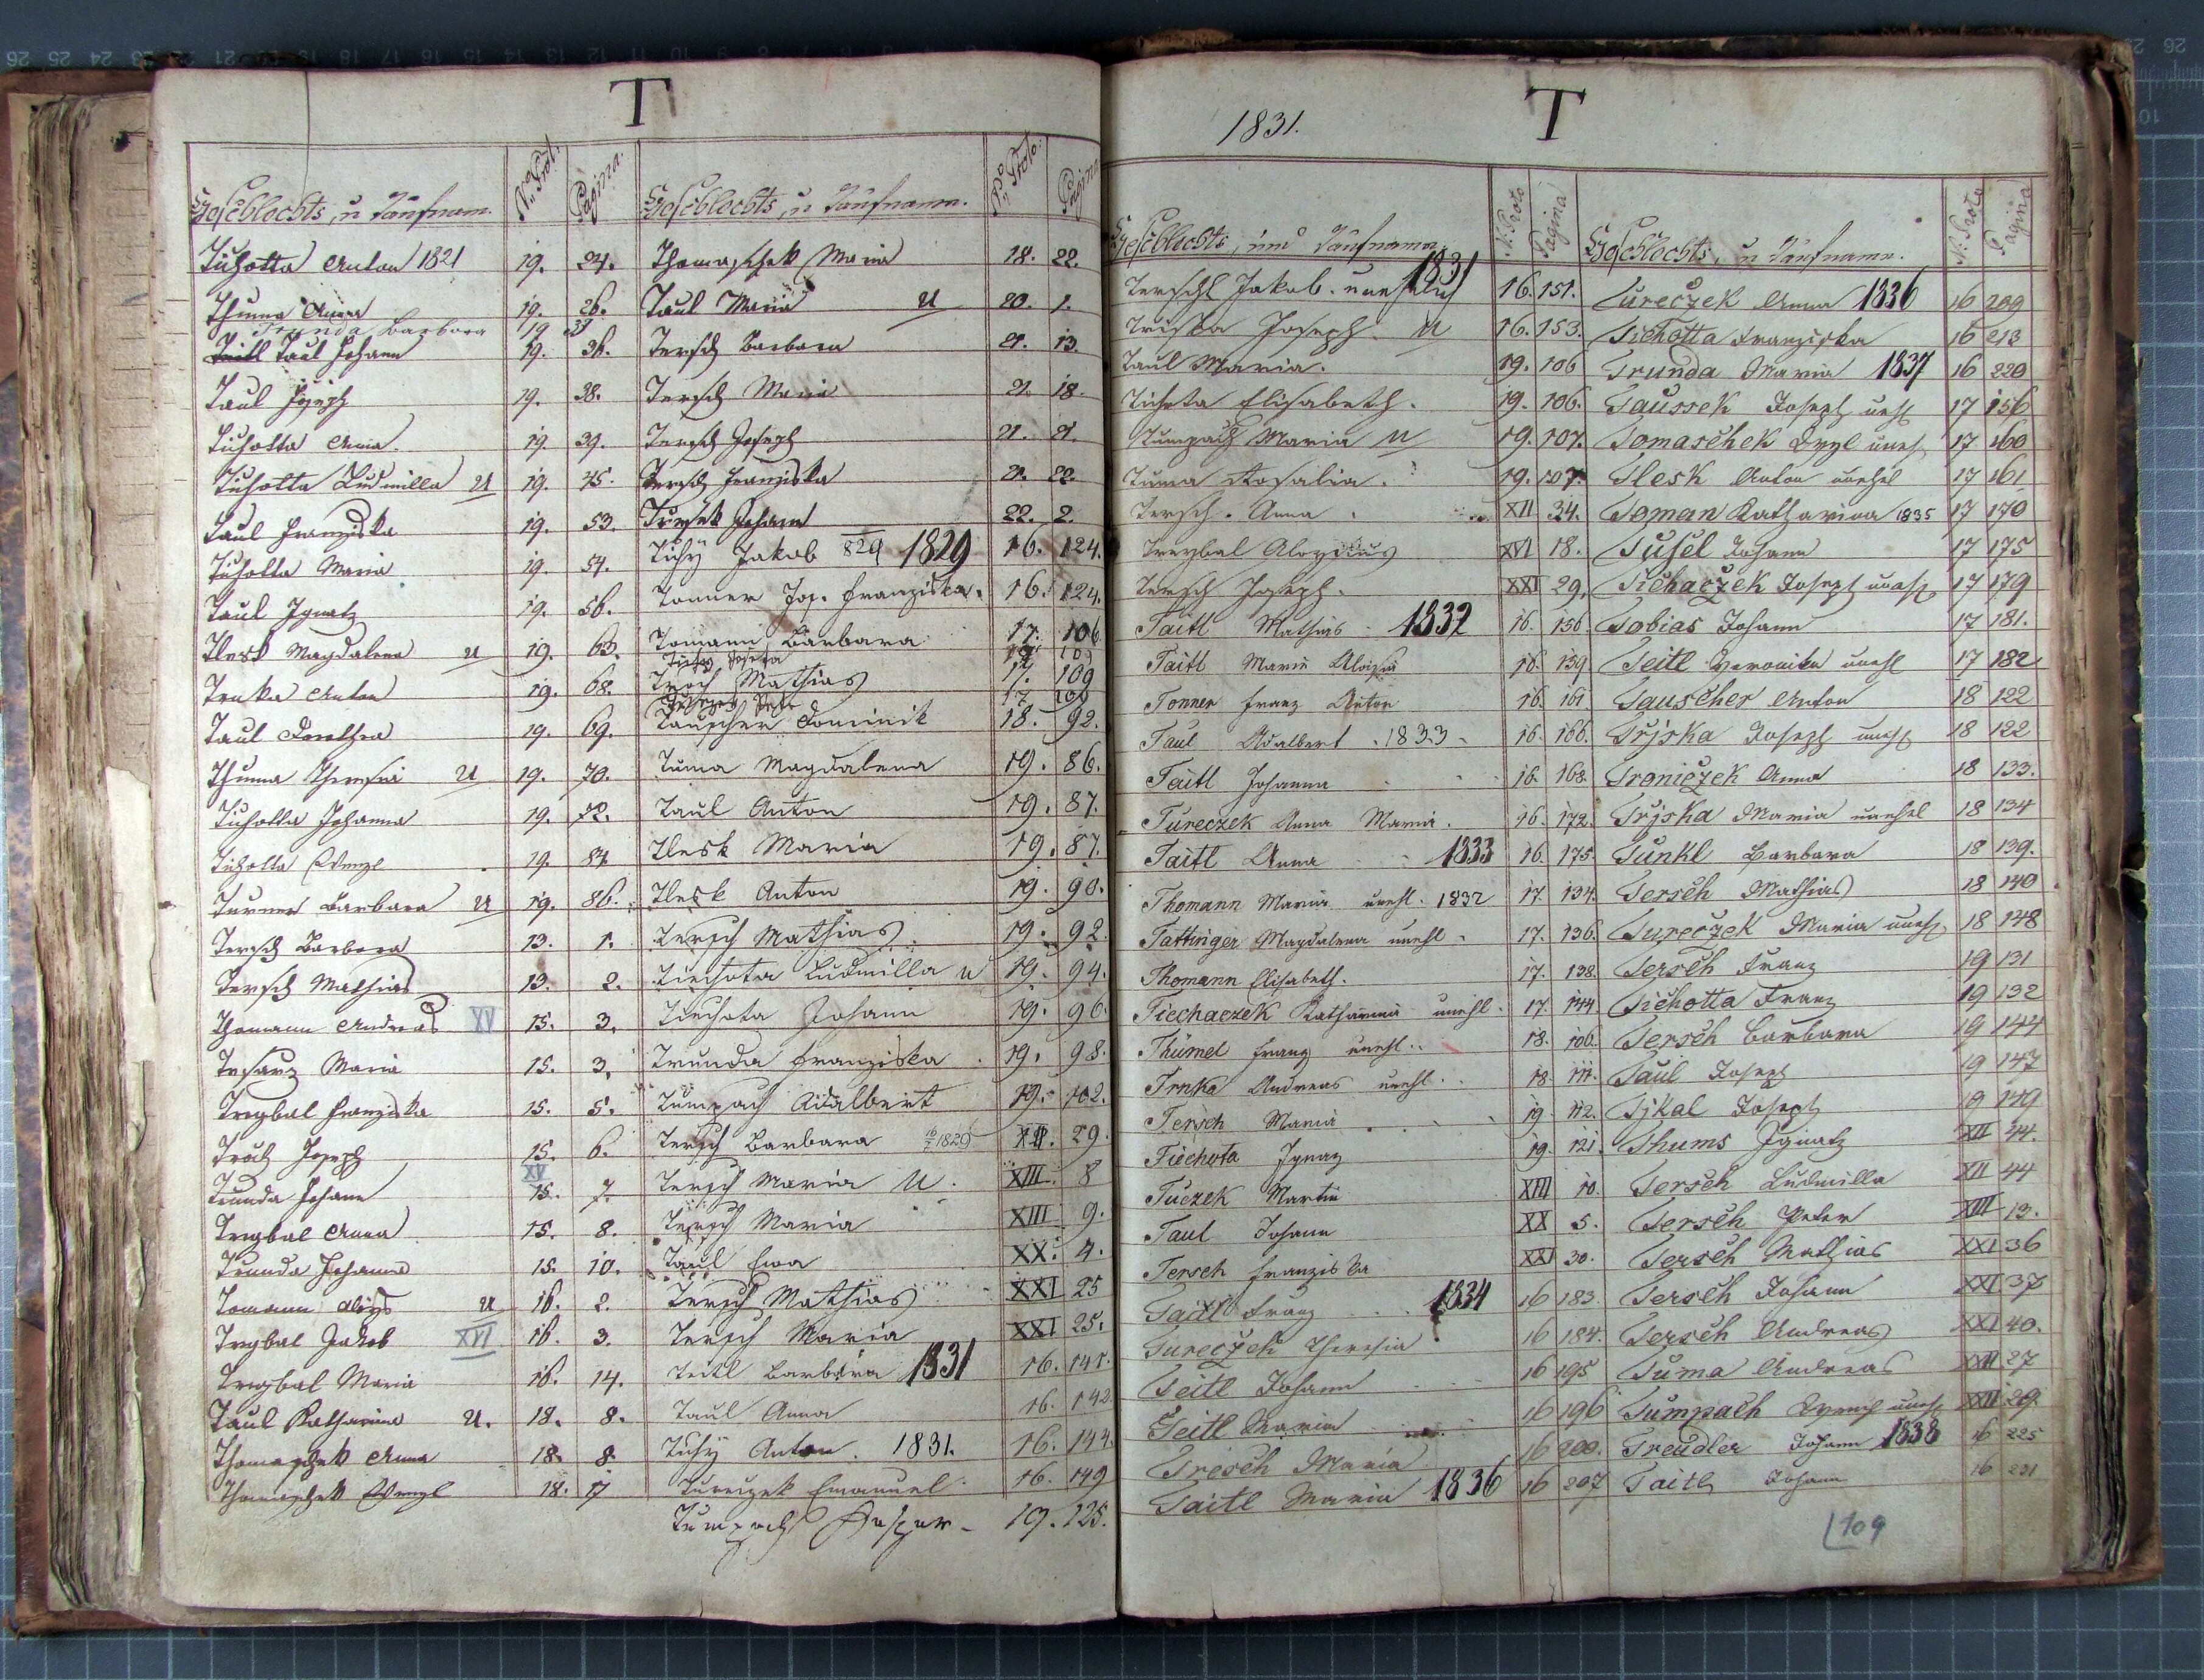 T
Geschlechts, u Taufnam.
No. Prot.
Pagina.
Tichotta Anton 1821 19. 24.
Thuma Anna 19. 26.
Trunda Barbara 19 33
Taul Johann 19. 36.
Taul Joseph 19. 38.
Tichotta Anna. 19. 39.
Tichotta Ludmilla U 19. 45.
Taul Franziska 19. 53.
Tichotta Maria 19. 54.
Taul Ignatz 19. 56.
Tlesk Magdalena U 19. 63.
Trnka Anton 19. 68.
Taul Dorothea 19. 69.
Thuma Theresia U 19. 70.
Tichotta Johanna 19. 72.
Tichotta Wenzl 19. 84.
Turner Barbara U 19. 86.
Tersch Barbara 13. 1.
Tersch Mathias 13. 2.
Thomann Andreas XV 15. 3.
Tesarz Maria 15. 3.
Tregbal Franziska 15. 5.
Troch Joseph 15. 6.
Trunda Johann XV 15. 7.
Tregbal Anna 15. 8.
Trunda Johanna 15. 10.
Tomann Aloys U 16. 2.
Tregbal Jakob XVI 16. 3.
Tregbal Maria 16. 14.
Taul Katharina U. 18. 8.
Thomaschek Anna 18. 8.
Thomaschek Wenzl 18. 17
Geschlechts, u Taufnam.
No. Proto:
Pagina
Thomaschek Maria 18. 22.
Taul Maria U 20. 1.
Tersch Barbara 21. 13.
Tersch Maria 21. 18.
Tersch Joseph 21. 21.
Tersch Franziska 21. 22.
Johann 22. 2.
Tichy Jakob 829 1829 16. 124.
Tonner Jos. Franziska. 16. 124.
Tomann Barbara 17. 106
Josefa
Troch Mathias 17. 109
Tauscher Dominik 18. 92.
Tuma Magdalena 19. 86.
Taul Anton 19. 87.
Tlesk Maria 19. 87.
Tlesk Anton 19. 90.
Tersch Mathias 19. 92.
Tiechota Ludmilla u 19. 94.
Tiechota Johann 19. 96.
Trunda Franziska 19. 98.
Tumpach Adalbert 19. 102.
Tersch Barbara 1829 XII. 29.
Tersch Maria U. XIII. 8
Tersch Maria XIII 9.
Taul Eva XX. 4.
Tersch Mathias XXI 25
Tersch Maria XXI 25.
Teitl Barbara 1831 16. 141.
Taul Anna 16. 142.
Tichy Anton. 1831. 16. 144.
Tureczek Emanuel 16. 149
Tumpach 19. 125.
1831.
T
Geschlechts, und Taufnamen
N. Proto
Pagina
Terschl Jakob. unehelich 1831 16. 151.
Triska Joseph. U 16. 153.
Taul Maria. 19. 106
Tichota Elisabeth. 19. 106.
Tumpach Maria U 19. 107.
Tuma Rosalia. 19. 107.
Tersch. Anna XII 34.
Tregbal Aloysius XVI 18.
Tersch Joseph. XXI 29.
Taitl Mathias 1832 16. 156.
Taitl Maria Aloisia 16. 159.
Tonner Franz Anton 16. 161.
Taul Adalbert 1833 16. 166.
Taitl Johanna 16. 168.
Tureczek Anna Maria. 16. 172.
Taitl Anna 1833 16. 175.
Thomann Maria unehl. 1832 17. 134.
Tattinger Magdalena unehl. 17. 136.
Thomann Elisabeth. 17. 138.
Tiechaczek Katharina unehl. 17. 144
Thümel Franz unehl. 18. 106.
Trnka Andreas unehl. 18. 111.
Tersch Maria 19. 112.
Tiechota Ignaz 19. 121.
Tuczek Martin XIII 10.
Taul Johann XX 5.
Tersch Franziska XXI 30.
Taitl Franz 1834 16 183.
Tureczek Theresia 16 184.
Teitl Johann 16 195
Teitl Maria 16 196
Tresch Maria 16 200.
Taitl Maria 1836 16 207
Geschlechts, u Taufnamen.
N: Proto
Pagina
Tureczek Anna 1836 16 209
Tichotta Franziska 16 213
Trunda Maria 1837 16 220
Taussek Joseph uneh 17 156
Tomaschek Wzl uneh 17 160
Tlesk Anton unehel 17 161
Toman Katharina 1835 17 170
Tusel Johann 17 175
Tichaczek Joseph uneh 17 179
Tobias Johann 17 181.
Teitl Veronika unehl 17 182
Tauscher Anton 18 122
Trjska Joseph uneh 18 122
Troniczek Anna 18 133.
Trjska Maria unehel 18 134
Tunkl Barbara 18 139.
Tersch Mathias 18 140
Tureczek Maria uneh. 18 148
Tersch Franz 19 131
Tichotta Franz 19 132
Tersch Barbara 19 144
Taul Joseph 19 147
Tjkal Joseph 19 149
Thums Ignatz XII 44.
Tersch Ludmilla XII 44
Tersch Peter XIII 13.
Tersch Mathias XXI 36
Tersch Johann XXI 37
Tersch Andreas XXI 40.
Tuma Andreas XXII 27
Tumpach uneh XXII 29.
Treudler Johann 1838 16 225
Taitl Johann 16 231
109